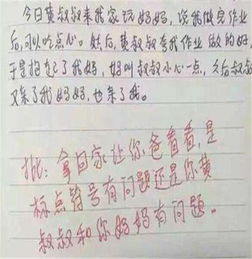 今日黄叔叔来我家玩妈妈,说我做完作业
后,可以吃点心。然后,黄叔叔夸我作业做的好
于是抱起了我妈,妈叫叔叔小心一点,之后叔叔
又亲了我妈妈,也亲了我。
批:拿回家让你爸看看,是
标点符号有问题还是你黄
叔叔和你妈妈有问题。